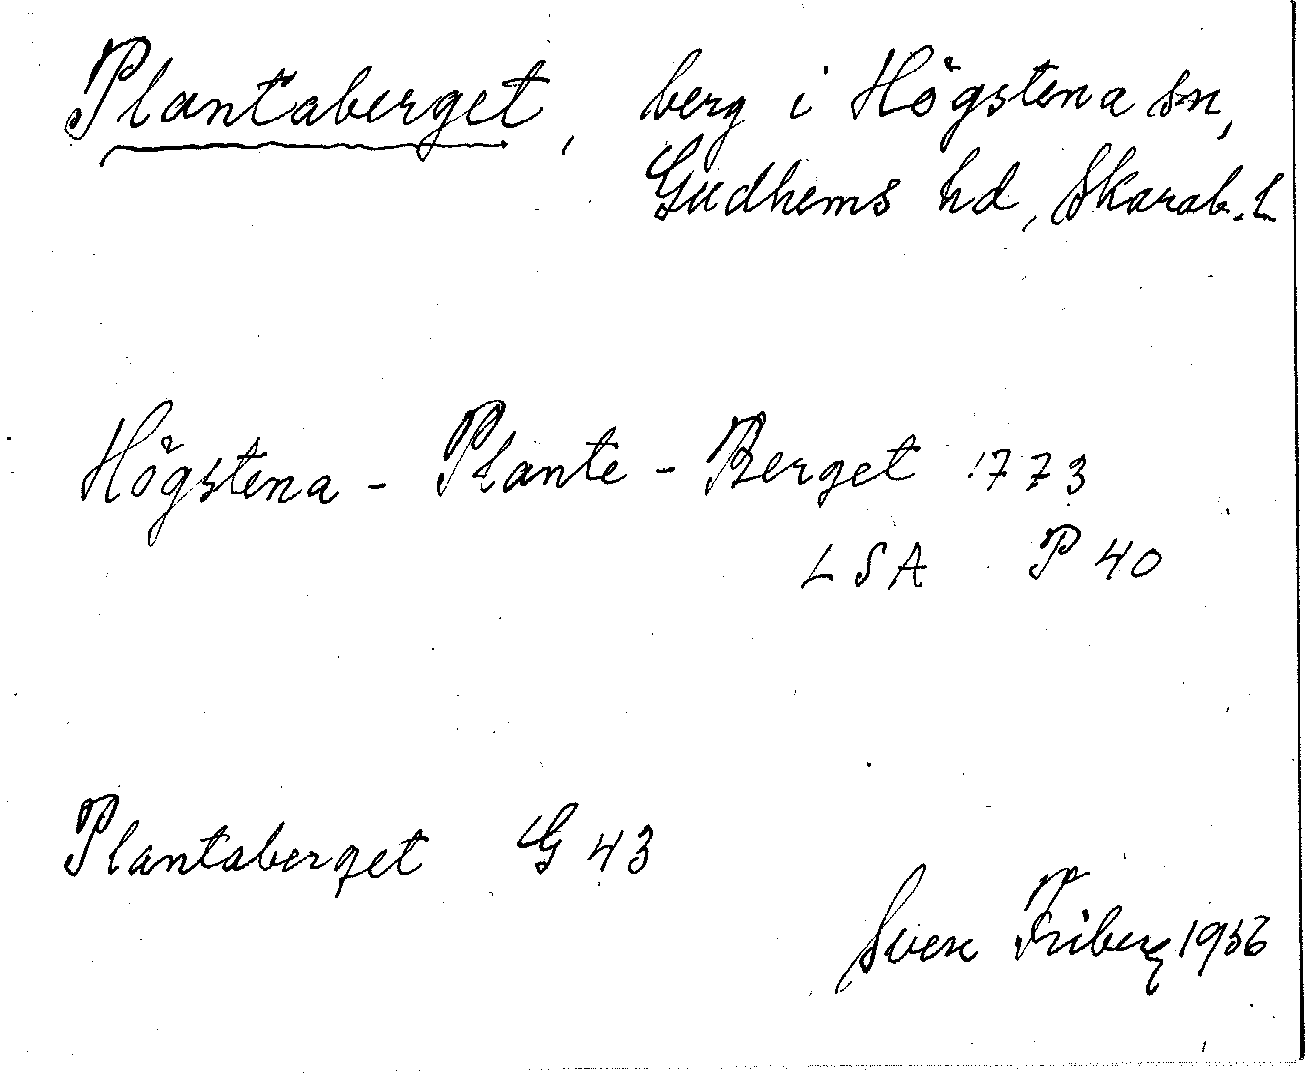 Plantaberget, berg i Högstena sn,
Gudhems hd, Skarab. l
Högstena - Plante - Berget 1773
LSA P 40
Plantaberget G 43
Sven Friberg 1956